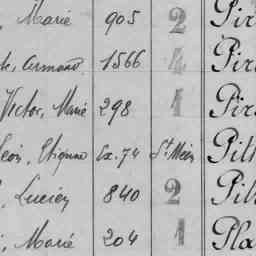 , Marie 905 2 Pir
Armand 1566 4 Pir
Victor, Marie 298 1 Pir
Léon, Etienne Ex. 74 St Méen Pill
, Lucien 840 2 Pil
, Marie 204 1 Pla